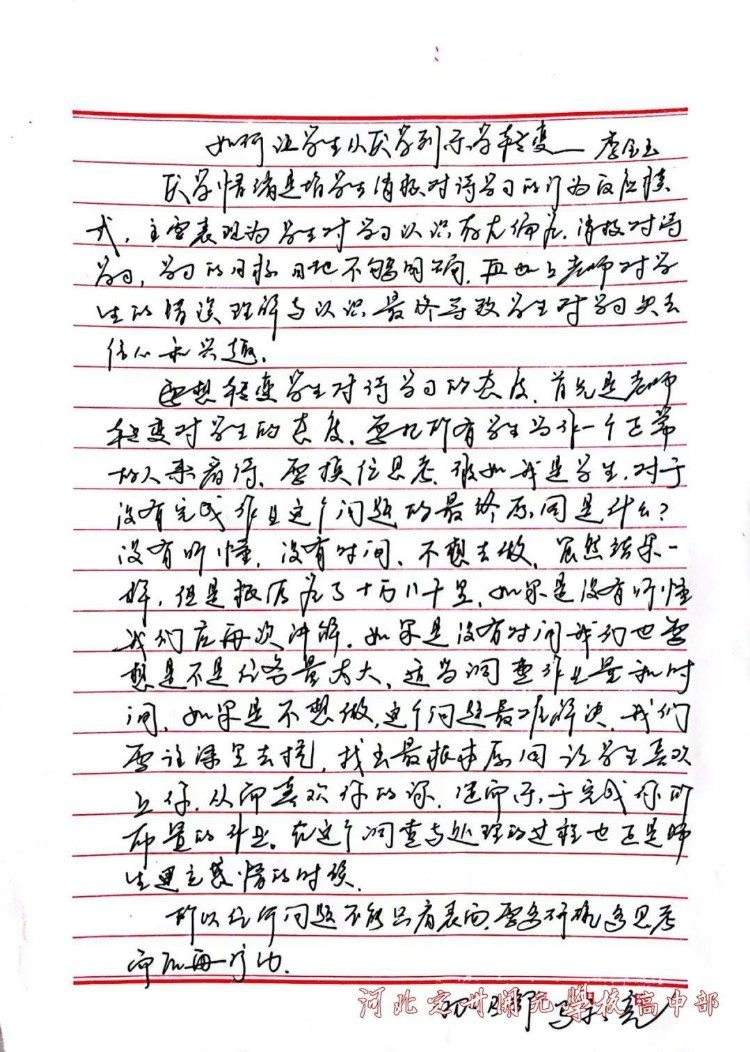 如何让学生从厌学到乐学转变 李金玉
厌学情绪是指学生消极对待学习的行为反应模
式，主要表现为学生对学习认识存在偏差，消极对待
学习，学习的目标目地不够明确，再加上老师对学
生的错误理解与认识最终导致学生对学习失去
信心和兴趣。
要想转变学生对待学习的态度，首先是老师
转变对学生的态度，要把所有学生当作一个正常
的人来看待，要换位思考，假如我是学生，对于
没有完成作业这个问题的最终原因是什么？
没有听懂，没有时间，不想去做，虽然结果一
样，但是根源差了十万八千里，如果是没有听懂
我们应再次讲解，如果是没有时间我们也要
想是不是任务量太大，适当调整作业量和时
间，如果是不想做，这个问题最难解决，我们
要往深里去挖，找出最根本原因让学生喜欢
上你，从而喜欢你的课，进而乐于完成你所
布置的作业。在这个调查与处理的过程也正是师
生建立感情的时候。
所以任何问题不能只看表面，要多研究多思考
而后再行动。
河北定州开元学校高中部